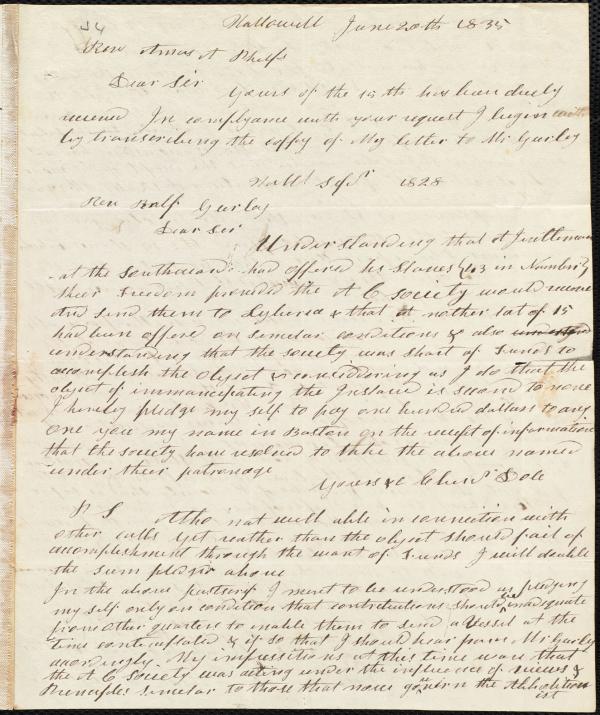 Hallowell June 20th 1835
Rev Amos A Phelps
Dear Sir
Yours of the 15th has been duely
receved In complyance with your request I begin with
by transcribing the coppy of My letter to Mr Gurley
Hallˡ Sepʳ 1828
Rev Ralf Gurley
Dear Sir
Understanding that A Jentleman
at the Southward had offered his Slaves (43 in Number)
their Freedom provided the A C Society would receve
and send them to Lyberia & that a nother lot of 15
had been offered on semelar conditions & also
understanding that the society was short of Funds to
accomplish the Object & considdering as I do that the
object of immancipating the Inslaved is second to none
I hereby pledge my self to pay one hundred dollars to any
one you my name in Boston on the receipt of information
that the Society have resolved to take the above named
under their patronage
Yours &c Ebenʳ Dole
P S Altho not well able in connection with
other calls yet reather than the object should fail of
accomplishment through the want of Funds I will double
the sum pledgd above
In the above I ment to be understood as pledging
my self only on condition that contributions should be inadequate
from other quarters to enable them to send a Vessel at the
time contemplated & if so that I should hear from Mr Gurley
acordingly. My impressitions at this time ware that
the A C Society was acting under the influence of views &
Principles semelar to those that now govern the Abbolition
ist